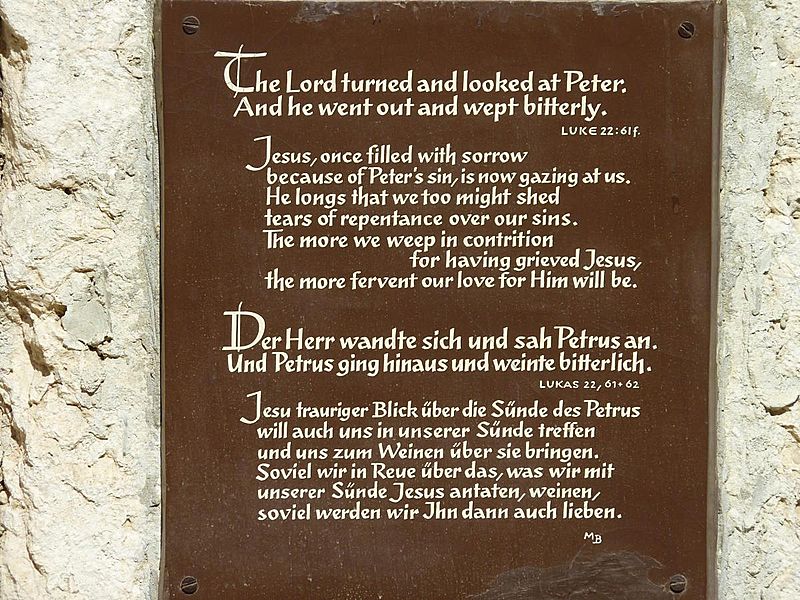 The Lord turned and looked at Peter.
And he went out and wept bitterly.
LUKE 22:61f.
Jesus, once filled with sorrow
because of Peter's sin, is now gazing at us.
He longs that we too might shed
tears of repentance over our sins.
The more we weep in contrition
for having grieved Jesus,
the more fervent our love for Him will be.
Der Herr wandte sich und sah Petrus an.
Und Petrus ging hinaus und weinte bitterlich.
LUKAS 22, 61+62
Jesu trauriger Blick über die Sünde des Petrus
will auch uns in unserer Sünde treffen
und uns zum Weinen über sie bringen.
Soviel wir in Reue über das, was wir mit
unserer Sünde Jesus antaten, weinen,
soviel werden wir Ihn dann auch lieben.
MB